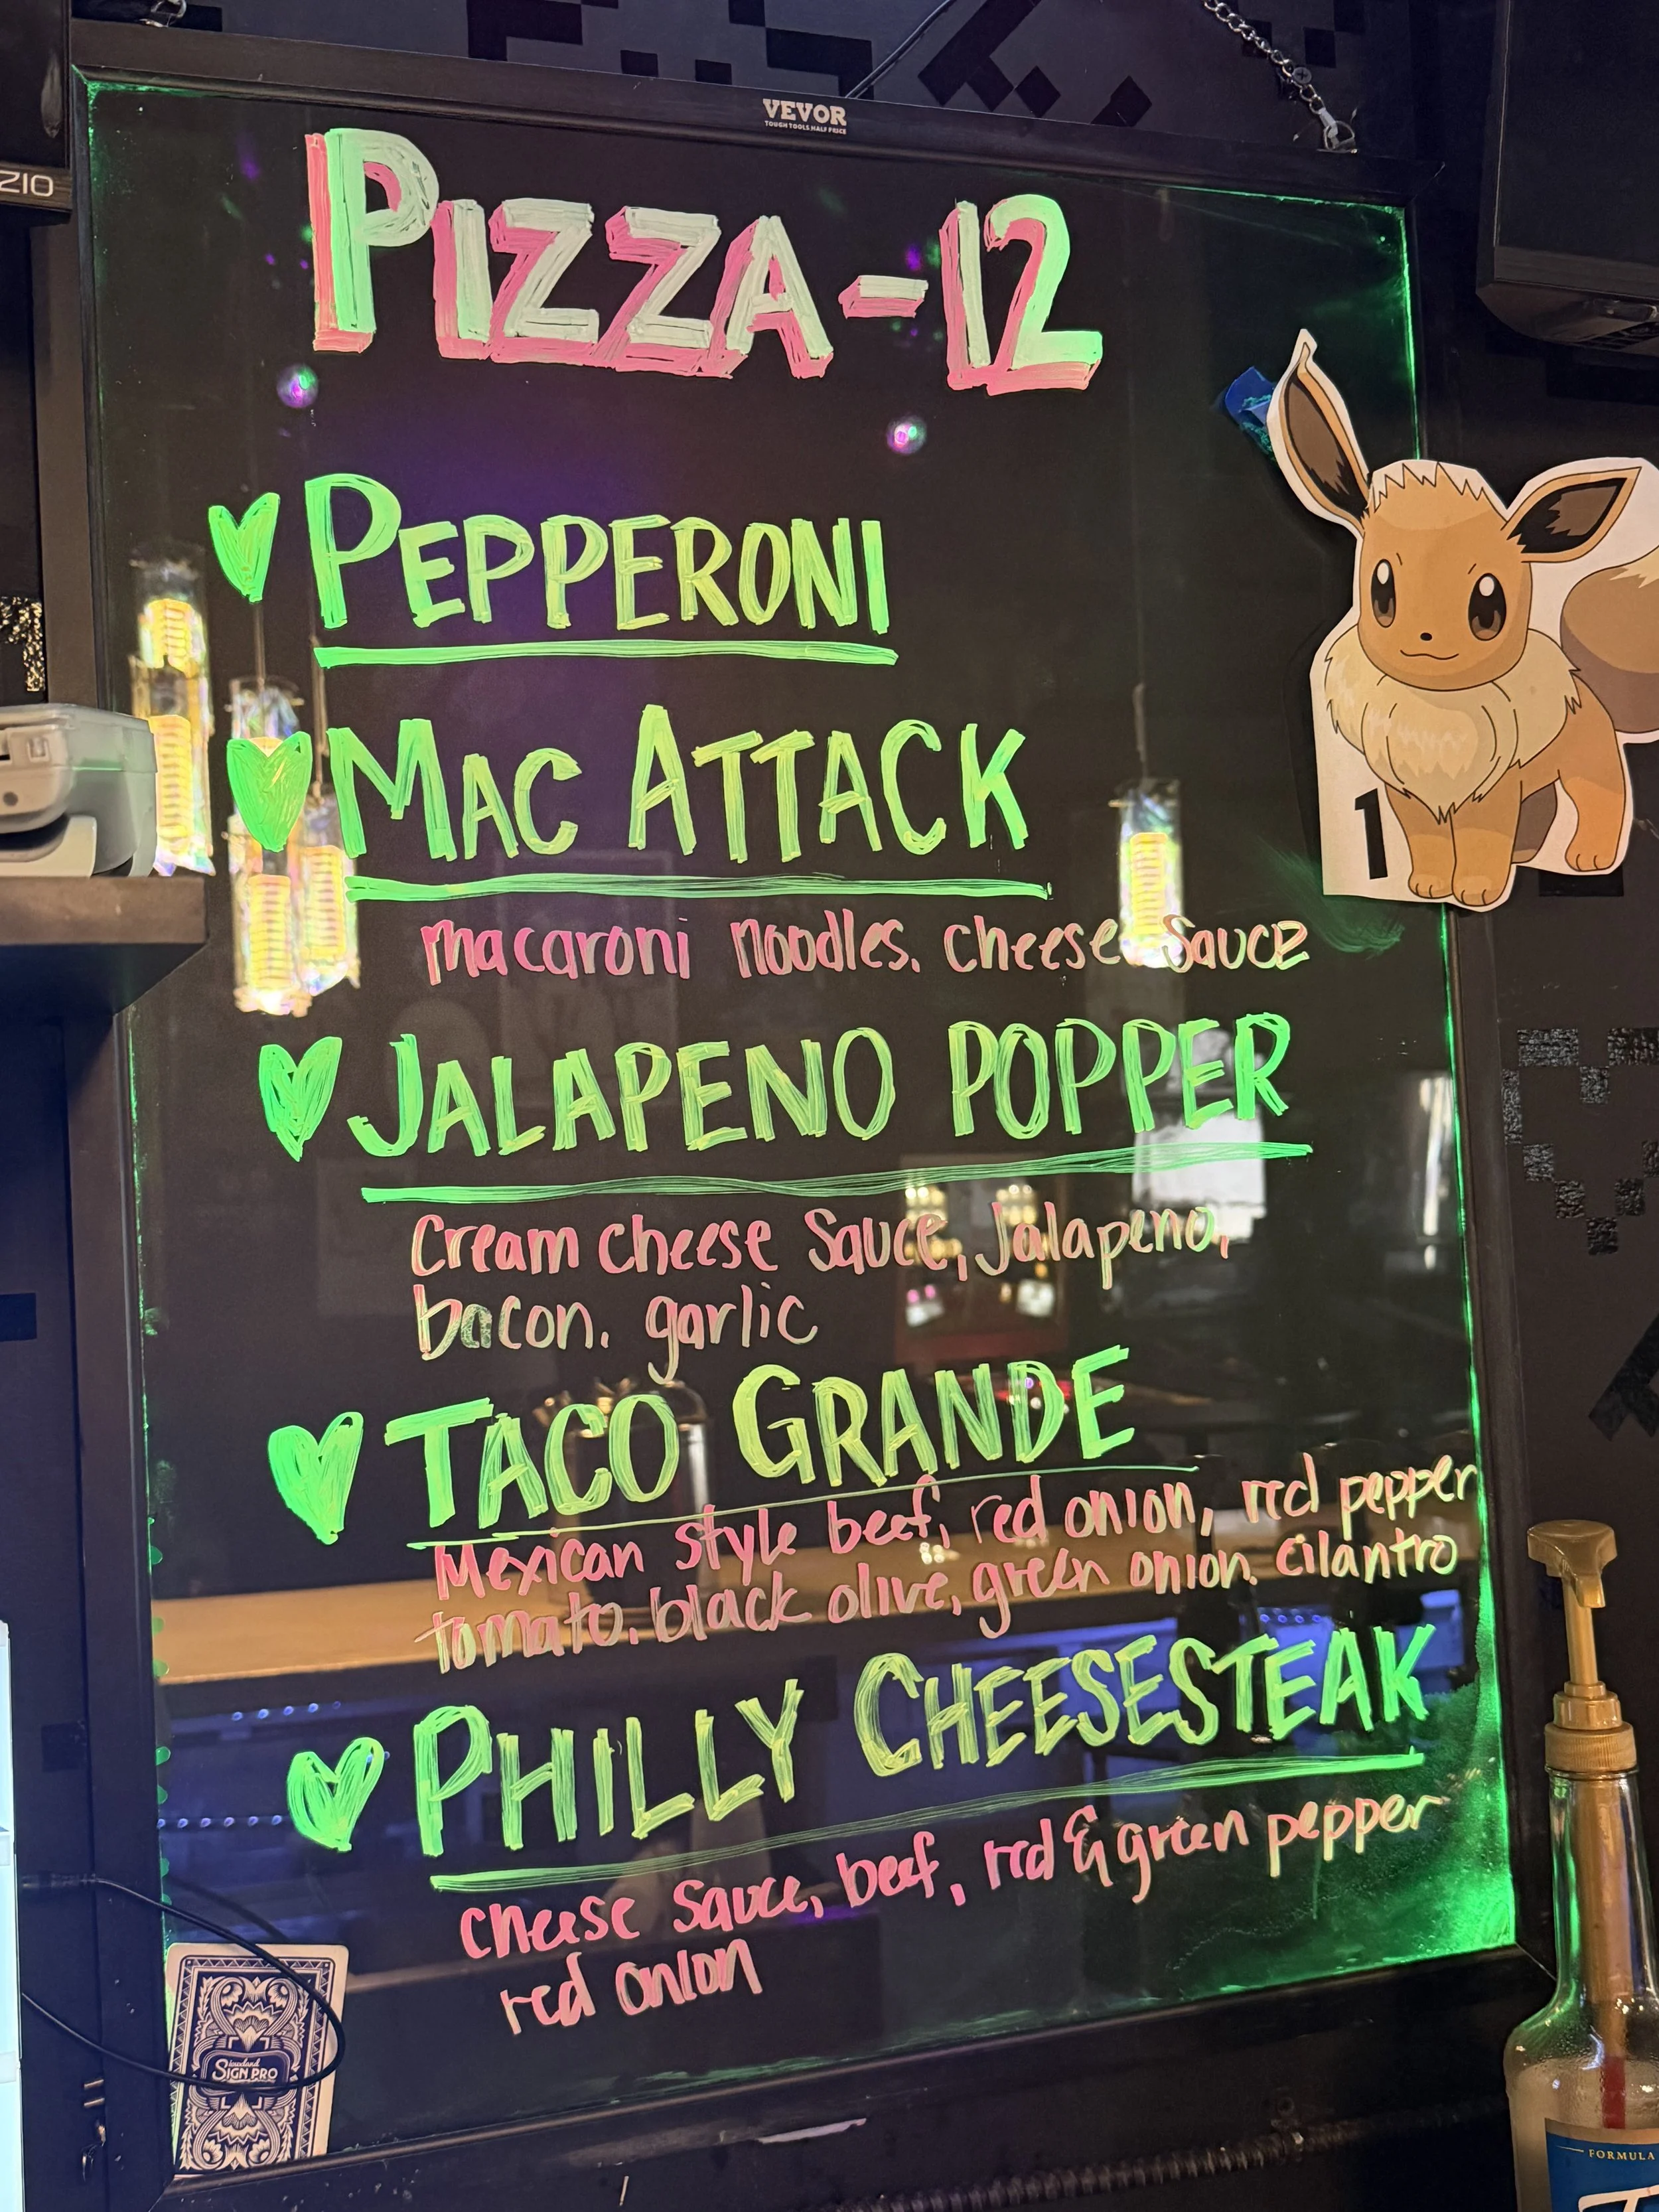 VEVOR
TOUGH TOOLS, HALF PRICE
ZIO
PIZZA-12
PEPPERONI
MAC ATTACK
macaroni noodles. cheese sauce
1
JALAPENO POPPER
Cream cheese Sauce, Jalapeno,
bacon. garlic
TACO GRANDE
Mexican style beef, red onion, red pepper
tomato. black olive, green onion. cilantro
PHILLY CHEESESTEAK
cheese sauce, beef, red & green pepper
red onion
SIGN PRO
FORMULA